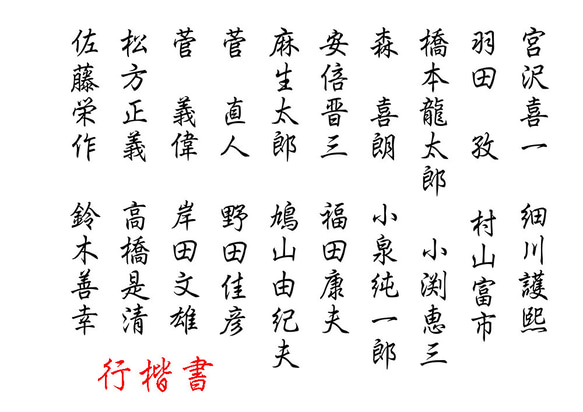 宮沢喜一
羽田 孜
橋本龍太郎
森 喜朗
安倍晋三
麻生太郎
菅 直人
菅 義偉
松方正義
佐藤栄作
細川護熙
村山富市
小渕恵三
小泉純一郎
福田康夫
鳩山由紀夫
野田佳彦
岸田文雄
高橋是清
鈴木善幸
行楷書